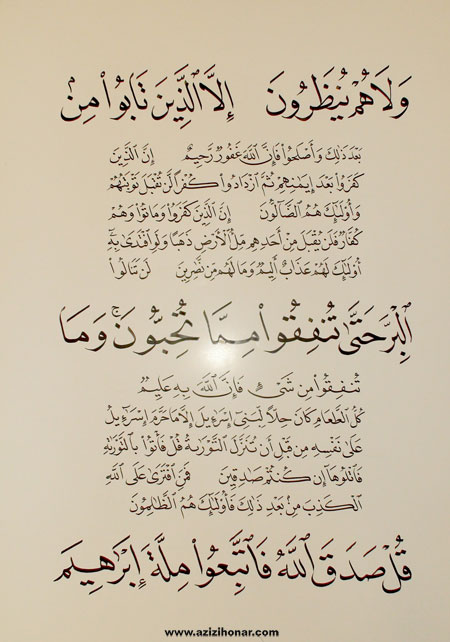 وَلَا هُمْ يُنظَرُونَ إِلَّا ٱلَّذِينَ تَابُوا۟ مِنۢ
بَعْدِ ذَٰلِكَ وَأَصْلَحُوا۟ فَإِنَّ ٱللَّهَ غَفُورٌ رَّحِيمٌ إِنَّ ٱلَّذِينَ
كَفَرُوا۟ بَعْدَ إِيمَٰنِهِمْ ثُمَّ ٱزْدَادُوا۟ كُفْرًا لَّن تُقْبَلَ تَوْبَتُهُمْ
وَأُو۟لَٰٓئِكَ هُمُ ٱلضَّآلُّونَ إِنَّ ٱلَّذِينَ كَفَرُوا۟ وَمَاتُوا۟ وَهُمْ
كُفَّارٌ فَلَن يُقْبَلَ مِنْ أَحَدِهِم مِّلْءُ ٱلْأَرْضِ ذَهَبًا وَلَوِ ٱفْتَدَىٰ بِهِۦٓ
أُو۟لَٰٓئِكَ لَهُمْ عَذَابٌ أَلِيمٌ وَمَا لَهُم مِّن نَّٰصِرِينَ لَن تَنَالُوا۟
ٱلْبِرَّ حَتَّىٰ تُنفِقُوا۟ مِمَّا تُحِبُّونَ ۚ وَمَا
تُنفِقُوا۟ مِن شَىْءٍ فَإِنَّ ٱللَّهَ بِهِۦ عَلِيمٌ
كُلُّ ٱلطَّعَامِ كَانَ حِلًّا لِّبَنِىٓ إِسْرَٰٓءِيلَ إِلَّا مَا حَرَّمَ إِسْرَٰٓءِيلُ
عَلَىٰ نَفْسِهِۦ مِن قَبْلِ أَن تُنَزَّلَ ٱلتَّوْرَىٰةُ قُلْ فَأْتُوا۟ بِٱلتَّوْرَىٰةِ
فَٱتْلُوهَآ إِن كُنتُمْ صَٰدِقِينَ فَمَنِ ٱفْتَرَىٰ عَلَى ٱللَّهِ
ٱلْكَذِبَ مِنۢ بَعْدِ ذَٰلِكَ فَأُو۟لَٰٓئِكَ هُمُ ٱلظَّٰلِمُونَ
قُلْ صَدَقَ ٱللَّهُ فَٱتَّبِعُوا۟ مِلَّةَ إِبْرَٰهِيمَ
www.azizihonar.com